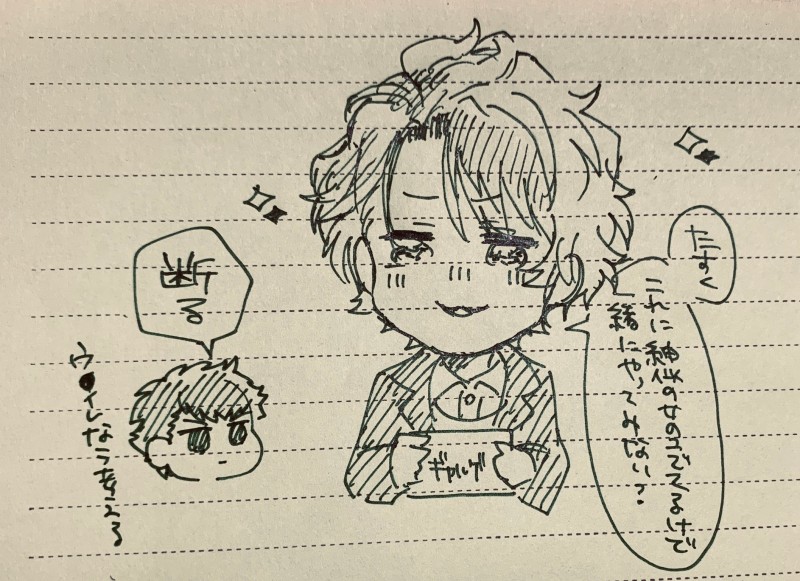 これに紳代の女の子でてるけど
一緒にやってみない?
ギャルゲ
断る
ウ●イレなら考える